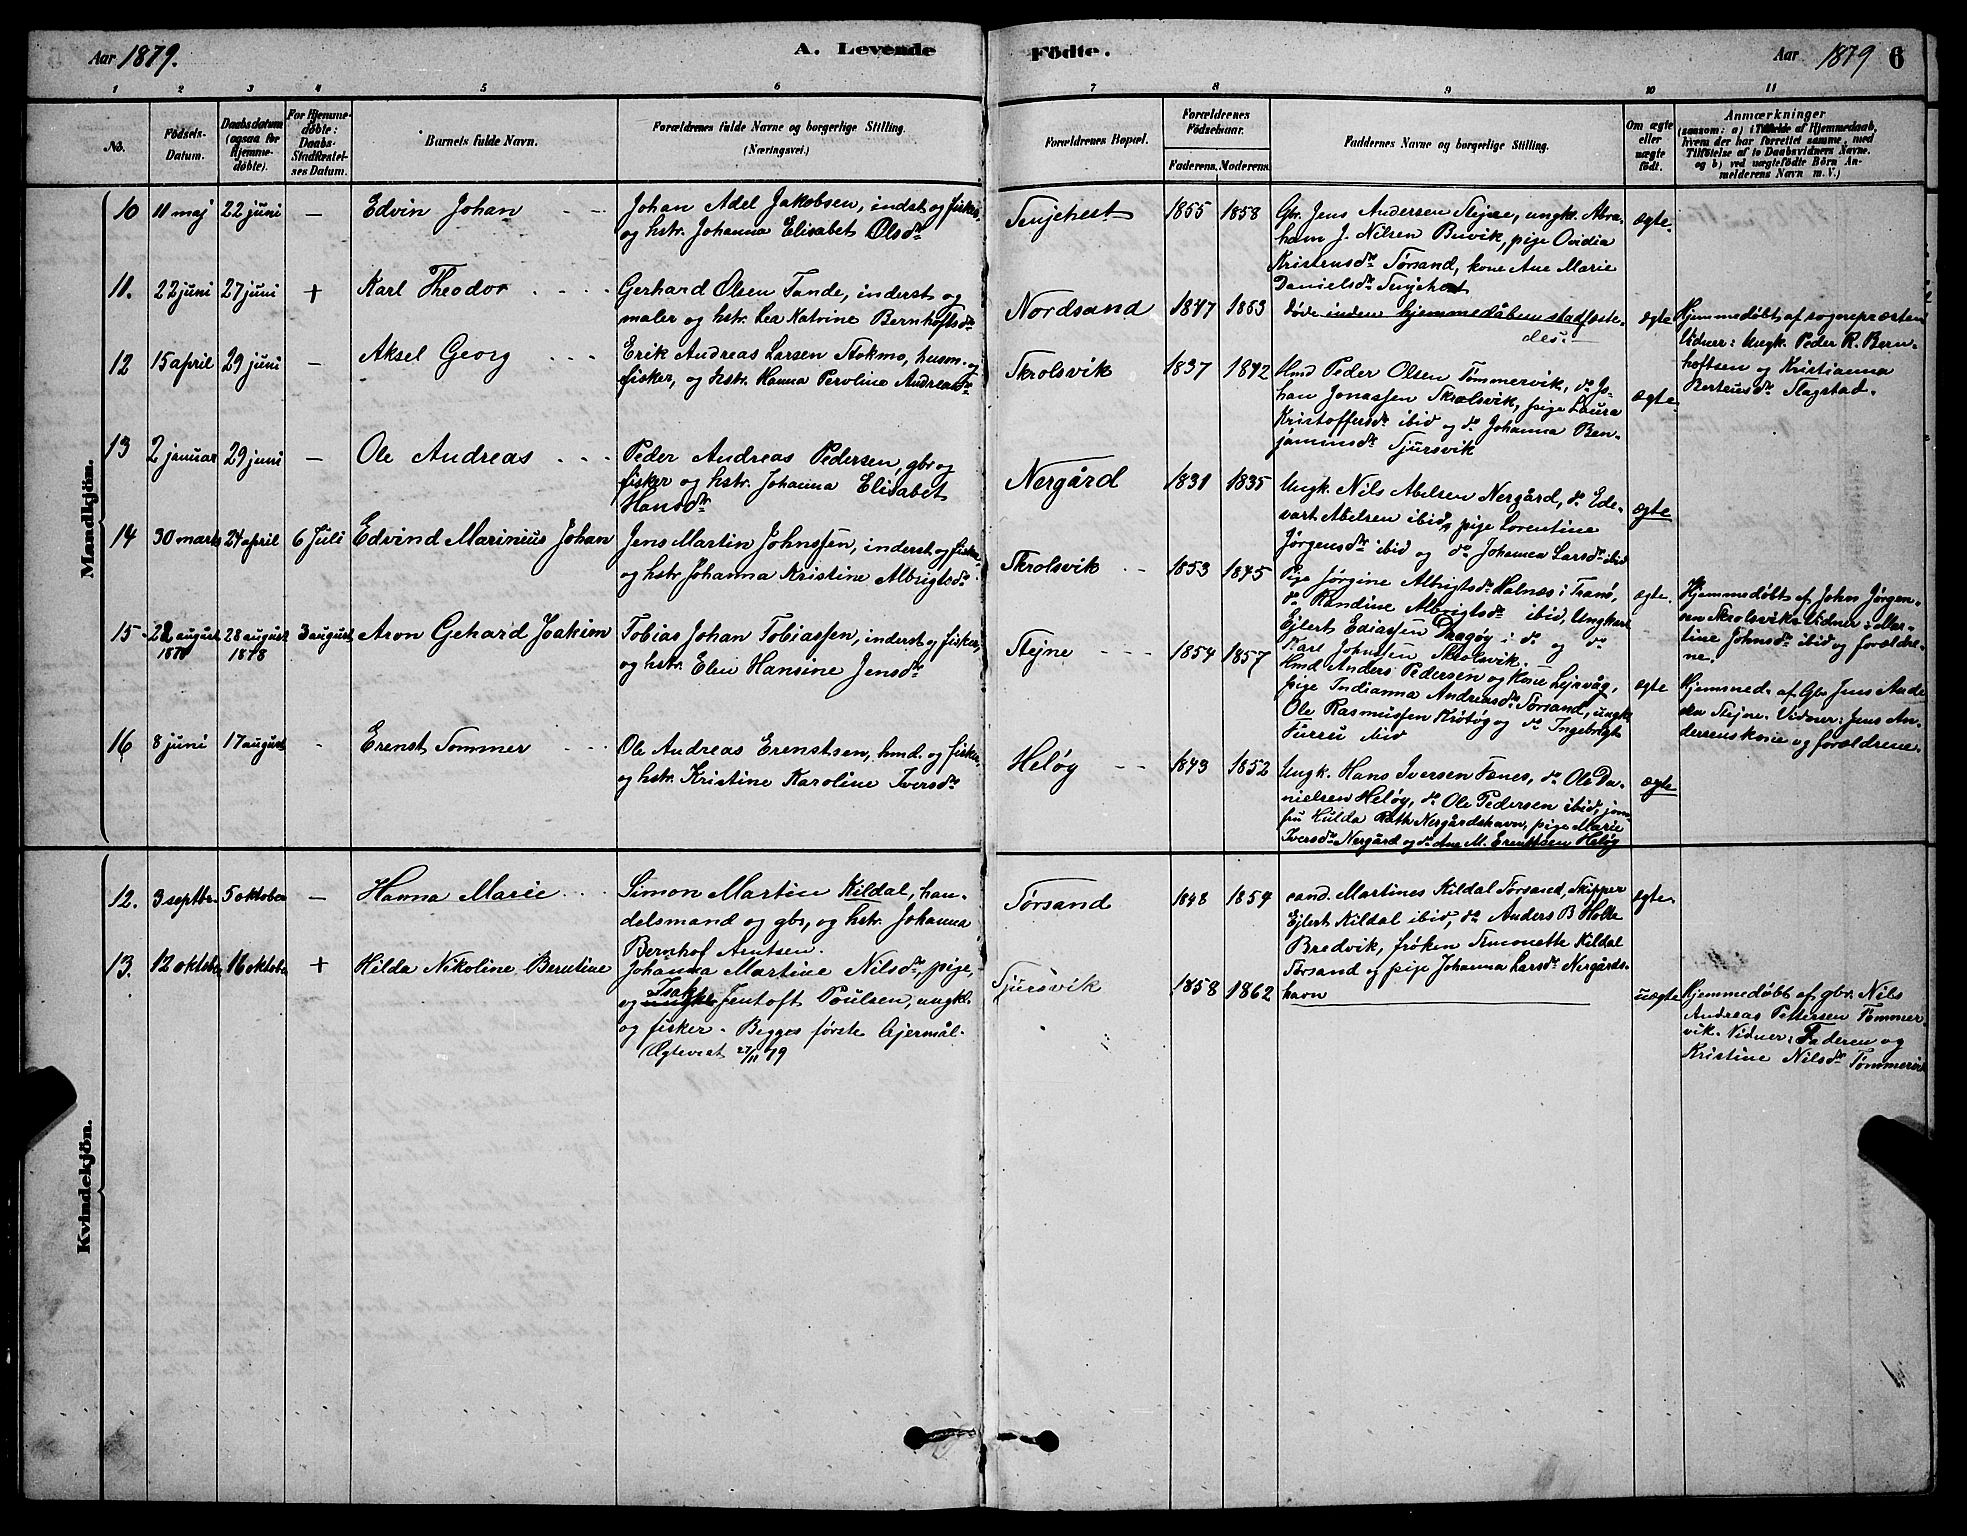 Aar 1879.
A. Levende
Födte.
Aar 1879
6
1 2 3 4 5 6 7 8 9 10 11
No.
Födsels-
Datum.
Daabsdatum
(ogsaa for
Hjemme-
døbte).
For Hjemme-
døbte:
Daabs-
Stadfæstel-
ses Datum.
Barnets fulde Navn.
Forældrenes fulde Navne og borgerlige Stilling.
(Næringsvei.)
Forældrenes Bopæl.
Forældrenes
Fødselsaar.
Faderens. Moderens.
Faddernes Navne og borgerlige Stilling.
Om ægte
eller
uægte
født.
Anmærkninger
(saasom: a) i Tilfælde af Hjemmedaab,
hvem der har forrettet samme, med
Tilføielse af to Daabsvidners Navne,
og b) ved uægtefødte Börn An-
melderens Navn m. V.)
Mandkjön.
10 11 maj 22 juni — Edvin Johan
Johan Adel Jakobsen, indst og fisker
og hstr. Johanna Elisabet Olsdr
1855 1858
Gbr. Jens Andersen Stejne, ungk. Abra-
ham J. Nilsen Buvik, pige Ovidia
Kristensdr Tørsand, kone Ane Marie
Danielsdr
ægte.
11. 22 juni 27 juni + Karl Theodor
Gerhard Olsen Tande, inderst og
maler og hstr. Lea Katrine Bernhoftsdr
Nordsand 1847 1853
døde inden hjemmedåben stadfæste-
des.
ægte
Hjemmedøbt af sognepræsten
Vidner: Ungk. Peder R. Bern-
hoftsen og Kristianna
Berteusdr Flagstad.
12 15 april 29 juni — Aksel Georg
Erik Andreas Larsen Stokmo, husm. og
fisker, og hstr. Hanna Peroline Andreasdr
Skrolsvik 1837 1842
Hmd Peder Olsen Tømmervik, do Jo-
han Jonassen Skrolsvik, pige Laura
Kristoffersdr ibid og do Johanna Ben-
jaminsdr Tjursvik
ægte.
13 2 januar 29 juni — Ole Andreas
Peder Andreas Pedersen, gbr og
fisker og hstr. Johanna Elisabet
Hansdr
Nergård 1831 1835
Ungk. Nils Abelsen Nergård, do Ede-
vart Abelsen ibid, pige Lorentine
Jørgensdr ibid og do Johanna Larsdr ibid
ægte
14 30 marts 24 april 6 Juli Edvind Marinius Johan
Jens Martin Johnssen, inderst og fisker
og hstr Johanna Kristine Albrigtsdr
Skrolsvik 1853 1845
Pige Jørgine Albrigtsdr Halnæs i Tranø,
do Randine Albrigtsdr ibid, Ungkarl
Ejlert Ediassen Dragøy i do og do
Karl Johnssen Skrolsvik.
ægte.
Hjemmedøbt af John Jørgen-
sen Skrolsvik. Vidner: Mar-
tine Johnsdr ibid og forældre-
ne.
15 22 august 1878 28 august 1878 3 august Aron Gehard Joakim
Tobias Johan Tobiassen, inderst og fisker,
og hstr. Elen Hansine Jensdr
Stejne 1854 1857
Hmd Anders Pedersen og Kone Lejrvåg,
pige Indianna Andreasdr Tørsand, ungk.
Ole Rasmussen Krøtøg og do Ingebrigt
ægte
Hjemmed. af Gbr Jens Ande
sen Stejne. Vidner: Jens An-
dersens kone og forældrene.
16 8 juni 17 august - Erenst Tommer
Ole Andreas Erenstsen, hmd. og fisker,
og hstr. Kristine Karoline Iversdr
Heløg 1843 1852
Ungk. Hans Iversen Fanes, do Ole Da-
nielsen Heløg, do Ole Pedersen ibid, jom-
fru Hulda Rath Nergårdshavn, pige Marie
Iversdr Nergård og do Ane M. Erenstsen Heløg
ægte
Kvindekjön.
12. 3 septbr. 5 oktober — Hanna Marie
Simon Martin Kildal, han-
delsmand og gbr, og hstr. Johanna
Bernhof Arntsen.
Tørsand 1848 1854
cand. Martines Kildal Tørsand, Skipper
Ejlert Kildal ibid, do Anders B Holte
Bredvik, frøken Simonette Kildal
Tørsand og pige Johanna Larsdr Nergårds-
havn
ægte.
13. 12 oktober 16 oktober + Hilda Nikoline Berntine
Johanna Martine Nilsdr, pige,
og Isak Jentoft Poulsen, ungk.
og fisker. Begges første Lejermål.
Ægteviet 27/11 79
Tjursvik 1858 1862
uægte
Hjemmedøbt af gbr. Nils
Andreas Pettersen Tømmer
vik. Vidner: Faderen og
Kristine Nilsdr Tømmervik